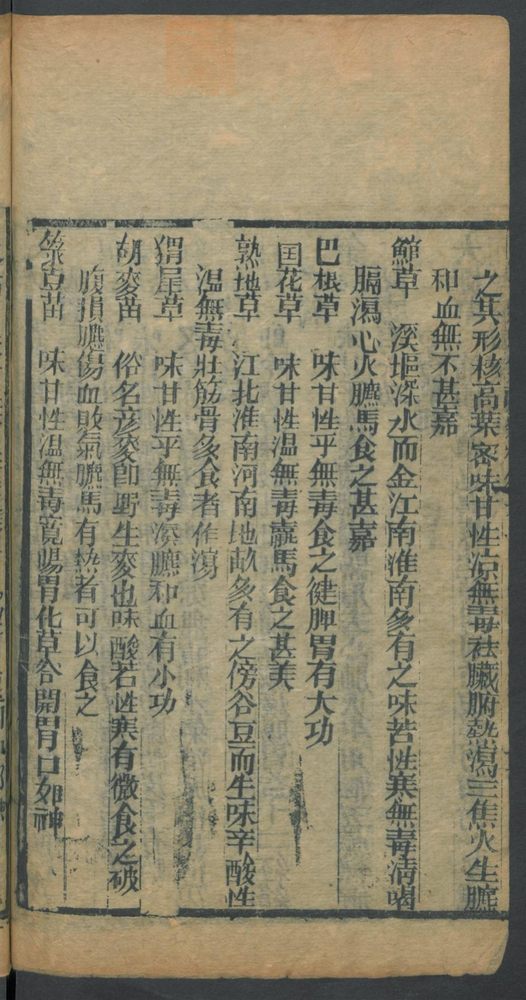 之其形核高葉密味甘性凉無毒祛臟腑熱瀉三焦火生臕
和血無不甚嘉
鯚草　深堰深水而金江南淮南多有之味苦性寒無毒清喝
膈瀉心火臕馬食之甚嘉
巴根草　味甘性平無毒食之健脾胃有大功
囯花草　味甘性温無毒羸馬食之甚美
熟地草　江北淮南河南地畝多有之傍谷豆而生味辛酸性
温無毒壯筋骨多食者作瀉
猬屖草　味甘性平無毒添臕和血有小功
胡麥苗　俗名彦麥即野生麥也味酸若性寒有微食之破
腹損臕傷血敗氣臕馬有熱者可以食之
菉豆苗　味甘性温無毒寛腸胃化草谷開胃口如神